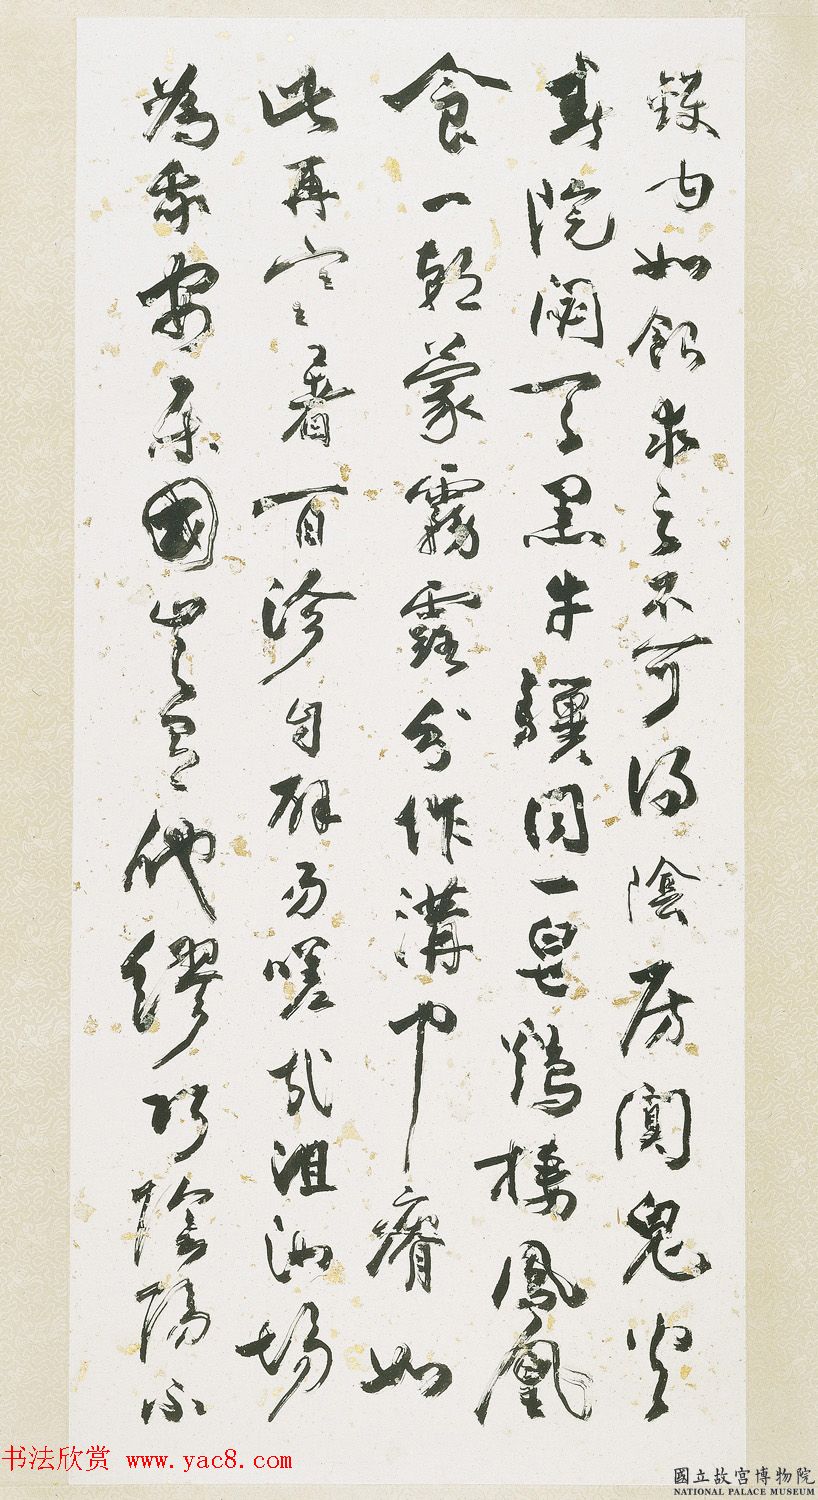 鑊甘如飴求之不可得陰房闃鬼火
春院閟天黑牛驥同一皂鷄棲鳳凰
食一朝蒙霧露分作溝中瘠如
此再寒暑百沴自辟易嗟哉沮洳場
為我安樂國豈有他繆巧陰陽不
书法欣赏 www.yac8.com
國立故宮博物院
NATIONAL PALACE MUSEUM